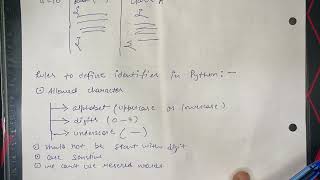 a=10
Rules to define identifier in Python:—
⊙ Allowed character
→ alphabet (uppercase or lowercase)
→ digits (0-9)
→ underscore (—)
⊙ should not be start with digit
⊙ case sensitive
⊙ we can't use reserved words